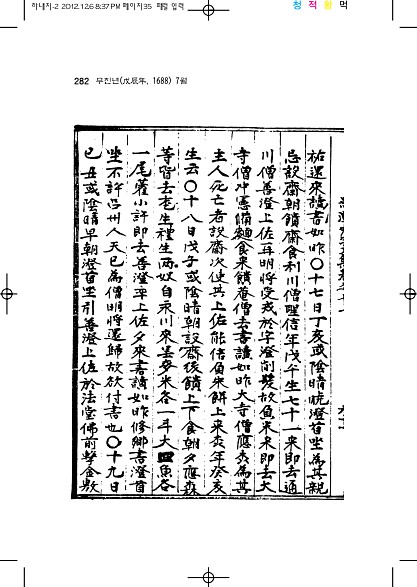 하내지-2 2012.12.6 8:37 PM 페이지35
청 적 황 먹
282 무진년(戊辰年, 1688) 7월
祐還來讀書如昨〇十七日丁亥或陰晴晩澄首坐為其親
忌設齋朝饋齋食利川僧聖信年戊午生七十一來即去通
川僧善澄上佐 明將受戒於字澄削髮故負米來即去大
寺僧冲憲備麵食來饋菴僧去書讀如昨大寺僧應 為其
主人死亡者設齋次使其上佐能 負米餅上來 年癸亥
生云〇十八日戊子或陰晴朝設齋後饋上下食朝夕應森
等留去老生種生 奴自永川來 多米各一斗大口魚各
一尾藿小許即去善澄 上佐夕來書讀如昨修鄕書澄首
坐不許 州人天已為僧明將還歸故欲付書也〇十九日
己丑或陰晴早朝澄首坐引善澄上佐於法堂佛前擊金敷